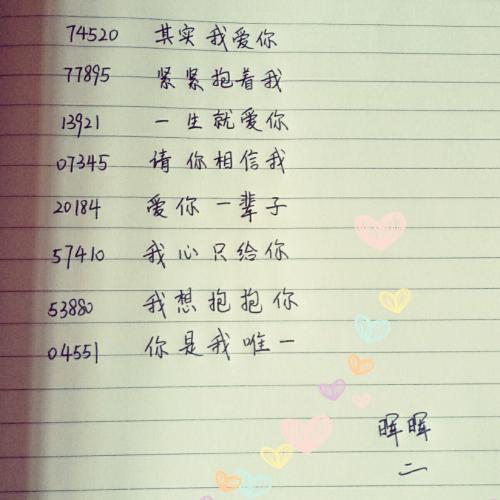 74520 其实我爱你
77895 紧紧抱着我
13921 一生就爱你
07345 请你相信我
20184 爱你一辈子
57410 我心只给你
53880 我想抱抱你
04551 你是我唯一
晖晖
二